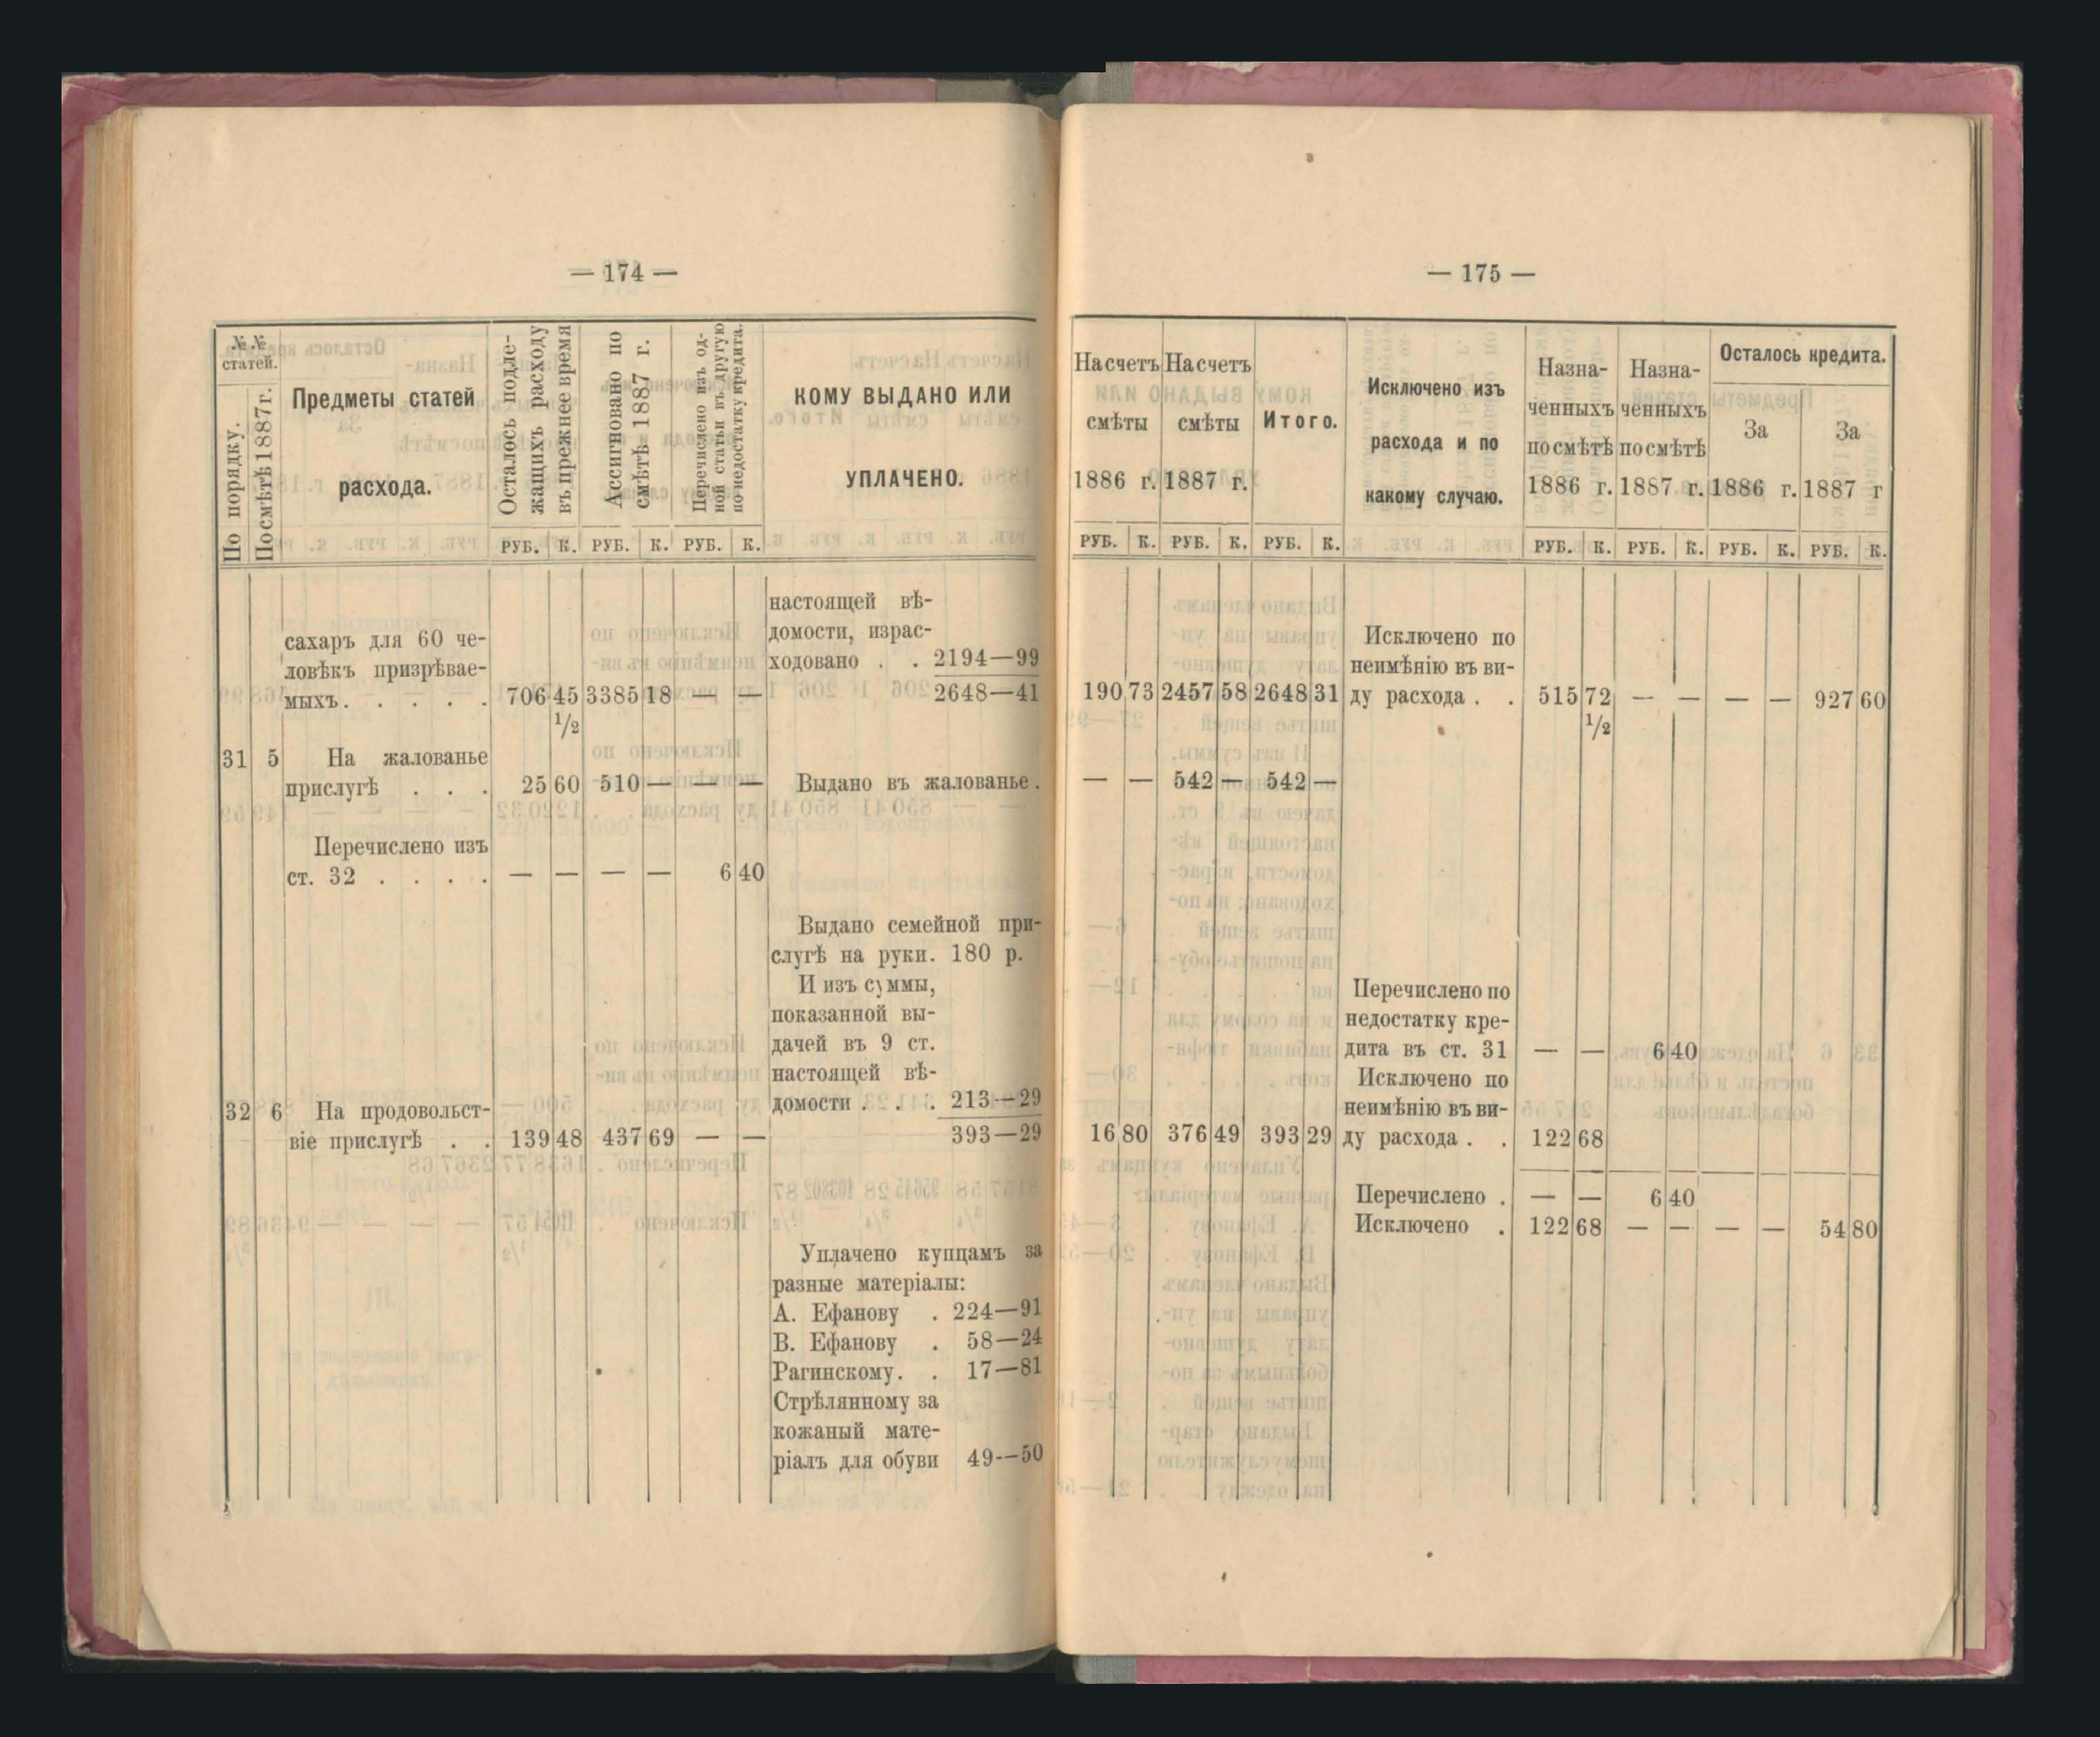 — 174 —
№№ статей.
По порядку.
По смѣтѣ 1887 г.
Предметы статей
расхода.
Осталось подле-
жащихъ расходу
въ прежнее время
Ассигновано по
смѣтѣ 1887 г.
Перечислено изъ од-
ной статьи въ другую
по недостатку кредита.
КОМУ ВЫДАНО ИЛИ
УПЛАЧЕНО.
РУБ. К. РУБ. К. РУБ. К.
настоящей вѣ-
домости, израс-
ходовано . . 2194—99
сахаръ для 60 че-
ловѣкъ призрѣвае-
мыхъ. . . . . 706 45 1/2 3385 18 — — 2648—41
31 5 На жалованье
прислугѣ . . . 25 60 510 — — — Выдано въ жалованье .
Перечислено изъ
ст. 32 . . . . — — — — 6 40
Выдано семейной при-
слугѣ на руки. 180 р.
И изъ суммы,
показанной вы-
дачей въ 9 ст.
настоящей вѣ-
домости . . . 213—29
32 6 На продовольст-
віе прислугѣ . . 139 48 437 69 — — 393—29
Уплачено купцамъ за
разные матеріалы:
А. Ефанову . 224—91
В. Ефанову . 58—24
Рагинскому. . 17—81
Стрѣлянному за
кожаный мате-
ріалъ для обуви 49—50
— 175 —
На счетъ
смѣты
1886 г.
На счетъ
смѣты
1887 г.
Итого.
Исключено изъ
расхода и по
какому случаю.
Назна-
ченныхъ
по смѣтѣ
1886 г.
Назна-
ченныхъ
по смѣтѣ
1887 г.
Осталось кредита.
За
1886 г.
За
1887 г
РУБ. К. РУБ. К. РУБ. К. РУБ. К. РУБ. К. РУБ. К. РУБ. К.
Исключено по
неимѣнію въ ви-
190 73 2457 58 2648 31 ду расхода . . 515 72 1/2 — — — — 927 60
— — 542 — 542 —
Перечислено по
недостатку кре-
дита въ ст. 31 — — 6 40
Исключено по
неимѣнію въ ви-
16 80 376 49 393 29 ду расхода . . 122 68
Перечислено . — — 6 40
Исключено . 122 68 — — — — 54 80